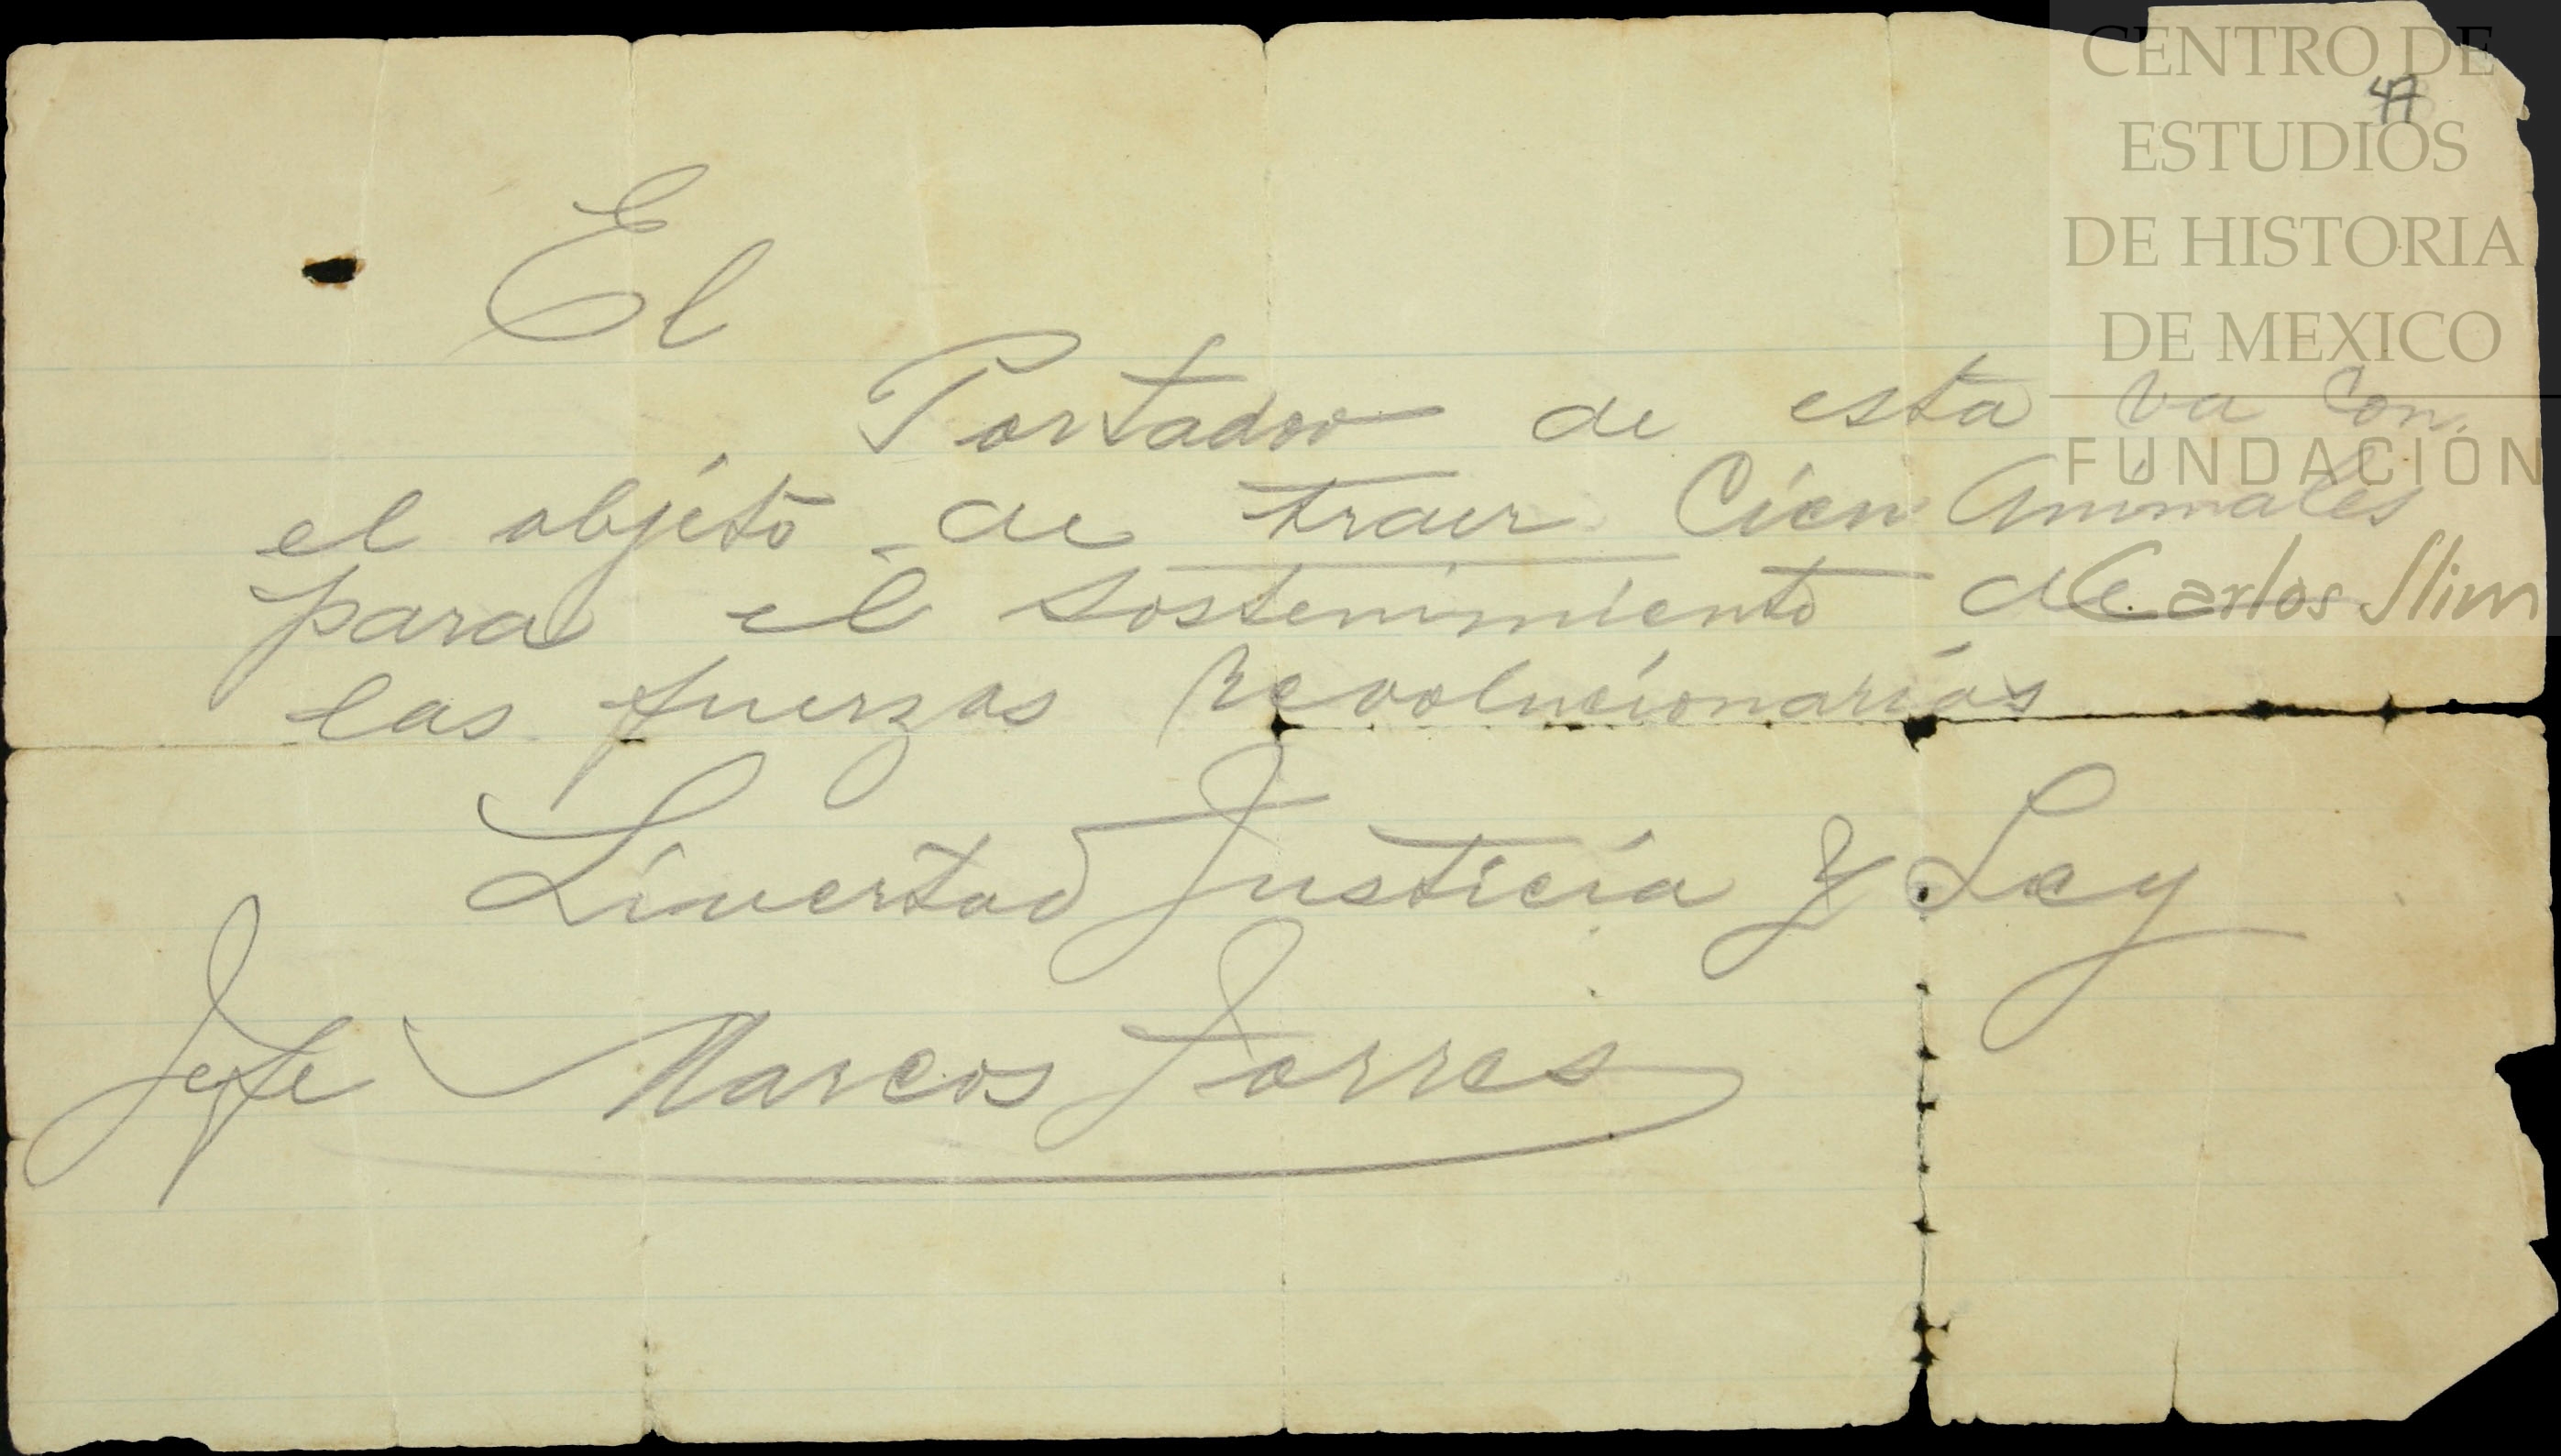 CENTRO DE
ESTUDIOS
DE HISTORIA
DE MEXICO
FUNDACIÓN
Carlos Slim
47
El
Portador de esta va con
el objeto de traer Cien Animales
para el sostenimiento de
las fuerzas Revolucionarias
Livertad Justicia y Ley
Jefe Marcos Torres